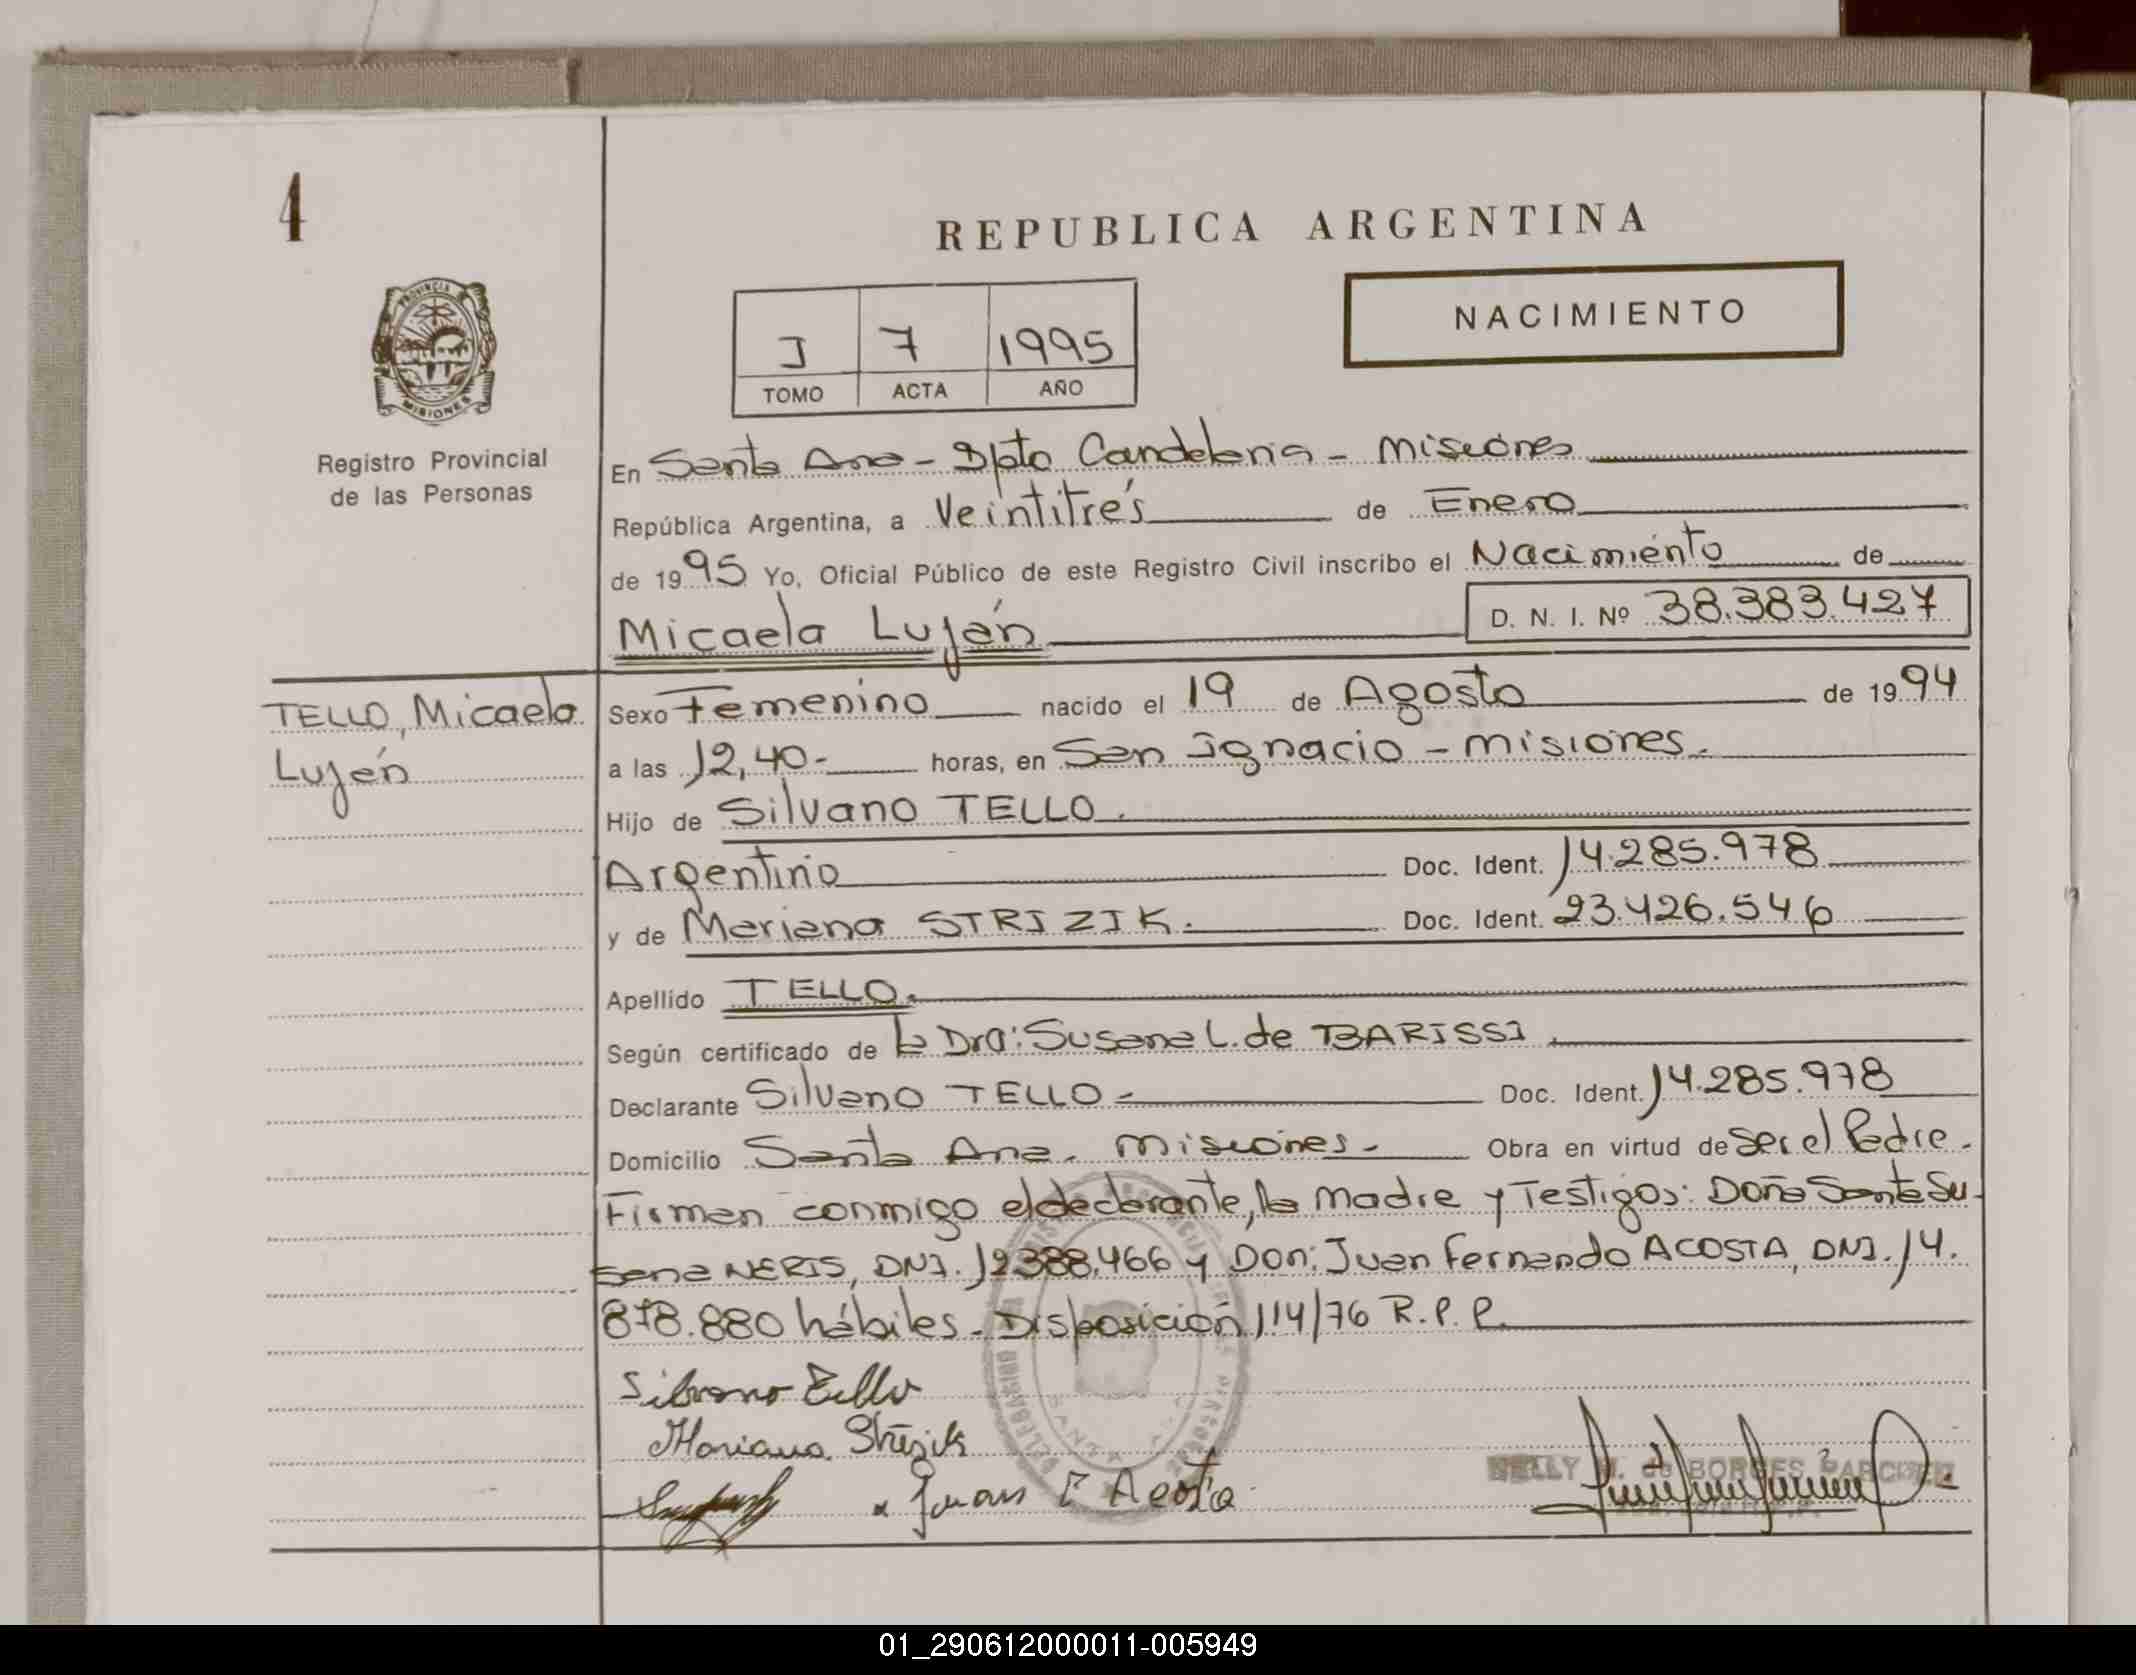 4
REPUBLICA ARGENTINA
NACIMIENTO
I 7 1995
TOMO ACTA AÑO
PROVINCIA
MISIONES
Registro Provincial
de las Personas
En Santa Ana - Dpto Candelaria - Misiones
República Argentina, a Veintitrés de Enero
de 1995 Yo, Oficial Público de este Registro Civil inscribo el Nacimiento de
Micaela Luján D. N. I. Nº 38.383.427
TELLO, Micaela
Luján
Sexo Femenino nacido el 19 de Agosto de 1994
a las 12,40.- horas, en San Ignacio - Misiones.
Hijo de Silvano TELLO.
Argentino Doc. Ident. 14.285.978
y de Mariana STRIZIK. Doc. Ident. 23.426.546
Apellido TELLO.
Según certificado de la Dra: Susana L. de BARISSI.
Declarante Silvano TELLO - Doc. Ident. 14.285.978
Domicilio Santa Ana. Misiones. Obra en virtud de ser el Padre.
Firman conmigo el declarante, la Madre y Testigos: Doña Santa Su-
sana NERIS, DNI. 12388.466 y Don: Juan Fernando ACOSTA, DNI. 14.
878.880 hábiles. Disposición 114/76 R.P.P.
Silvano Tello
Mariana Strizik
Juan F Acosta
NELLY de BORGES
SANTA ANA
01_290612000011-005949